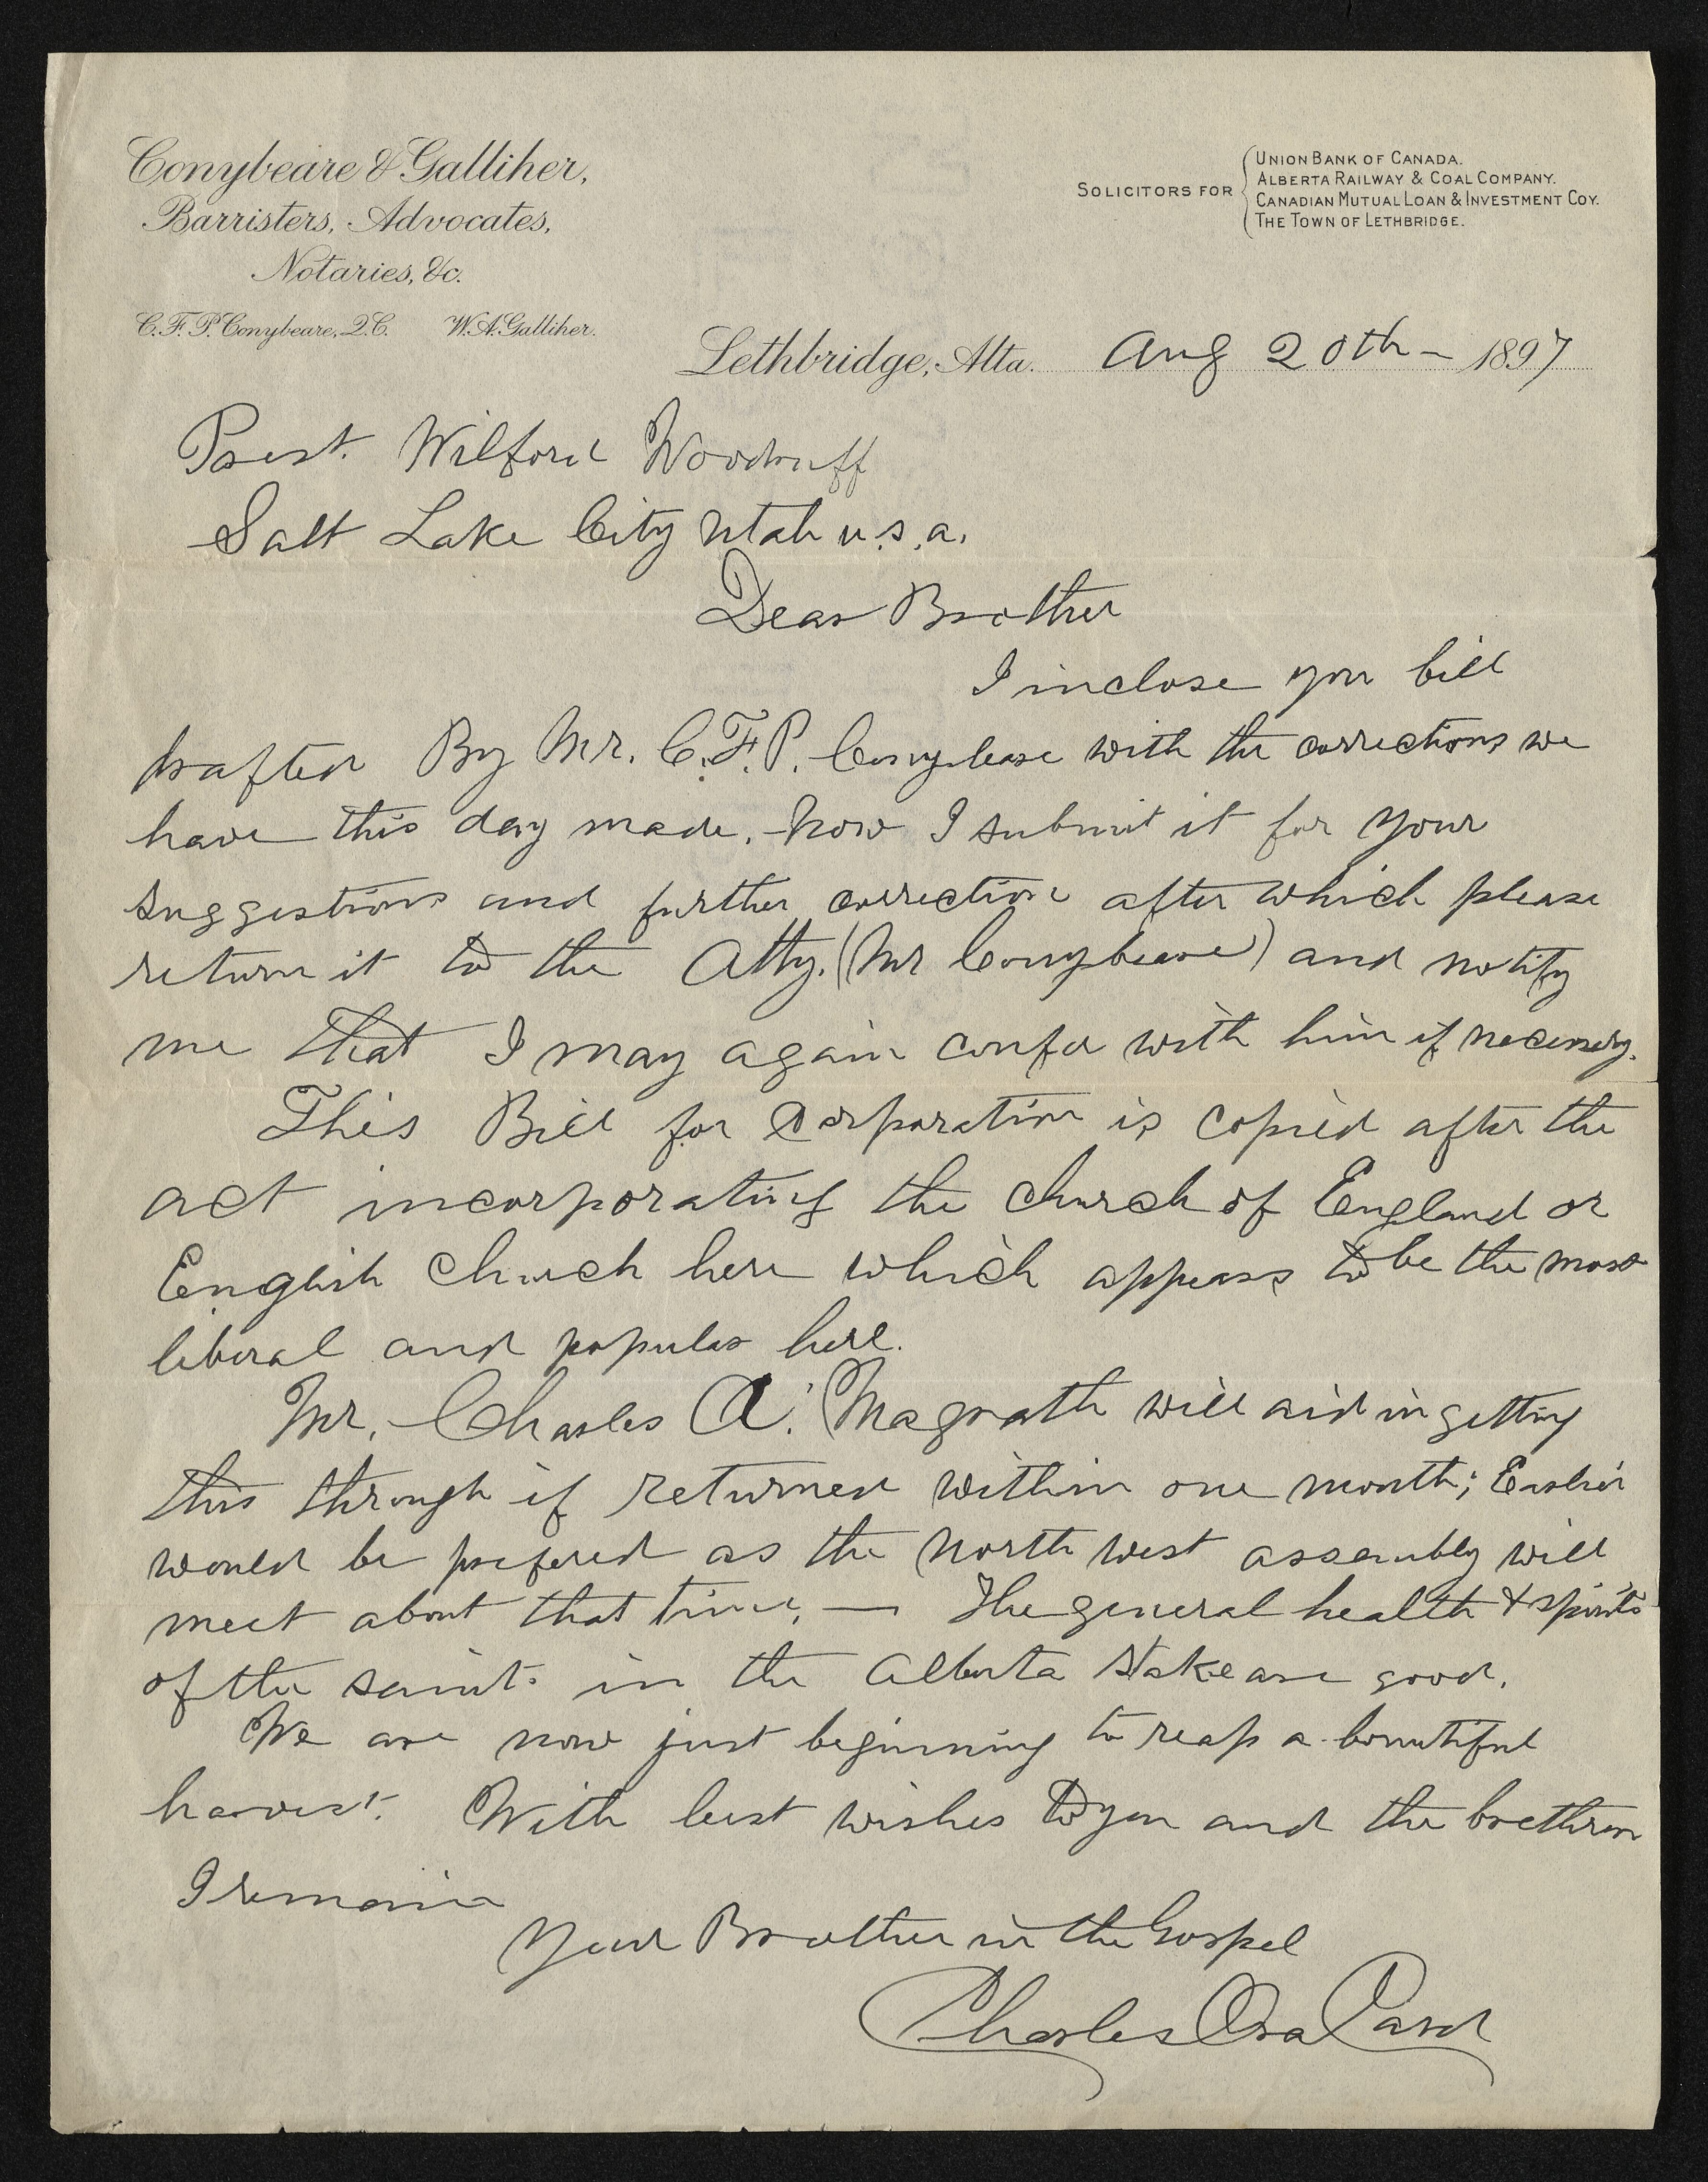 Conybeare & Galliher,
Barristers, Advocates,
Notaries, &c.
C. F. P. Conybeare, Q.C. W. A. Galliher.
SOLICITORS FOR
UNION BANK OF CANADA.
ALBERTA RAILWAY & COAL COMPANY.
CANADIAN MUTUAL LOAN & INVESTMENT COY.
THE TOWN OF LETHBRIDGE.
Lethbridge, Alta. Aug 20th – 1897
Prest. Wilford Woodruff
Salt Lake City Utah U.S.A.
Dear Brother
I inclose you bill
drafted By Mr. C.F.P. Conybeare with the corrections we
have this day made. Now I submit it for your
suggestions and further correction after which please
return it to the Atty. (Mr Conybeare) and notify
me that I may again confer with him if necessary.
This Bill for Corporation is copied after the
act incorporating the church of England or
English church here which appears to be the most
liberal and popular here.
Mr. Charles A. Magrath will aid in getting
this through if returned within one month; Earlier
would be prefered as the North west assembly will
meet about that time. — The general health & spirits
of the saints in the Alberta Stake are good.
We are now just beginning to reap a bountiful
harvest. With best wishes to you and the brethren
I remain
Your Brother in the Gospel
Charles Ora Card